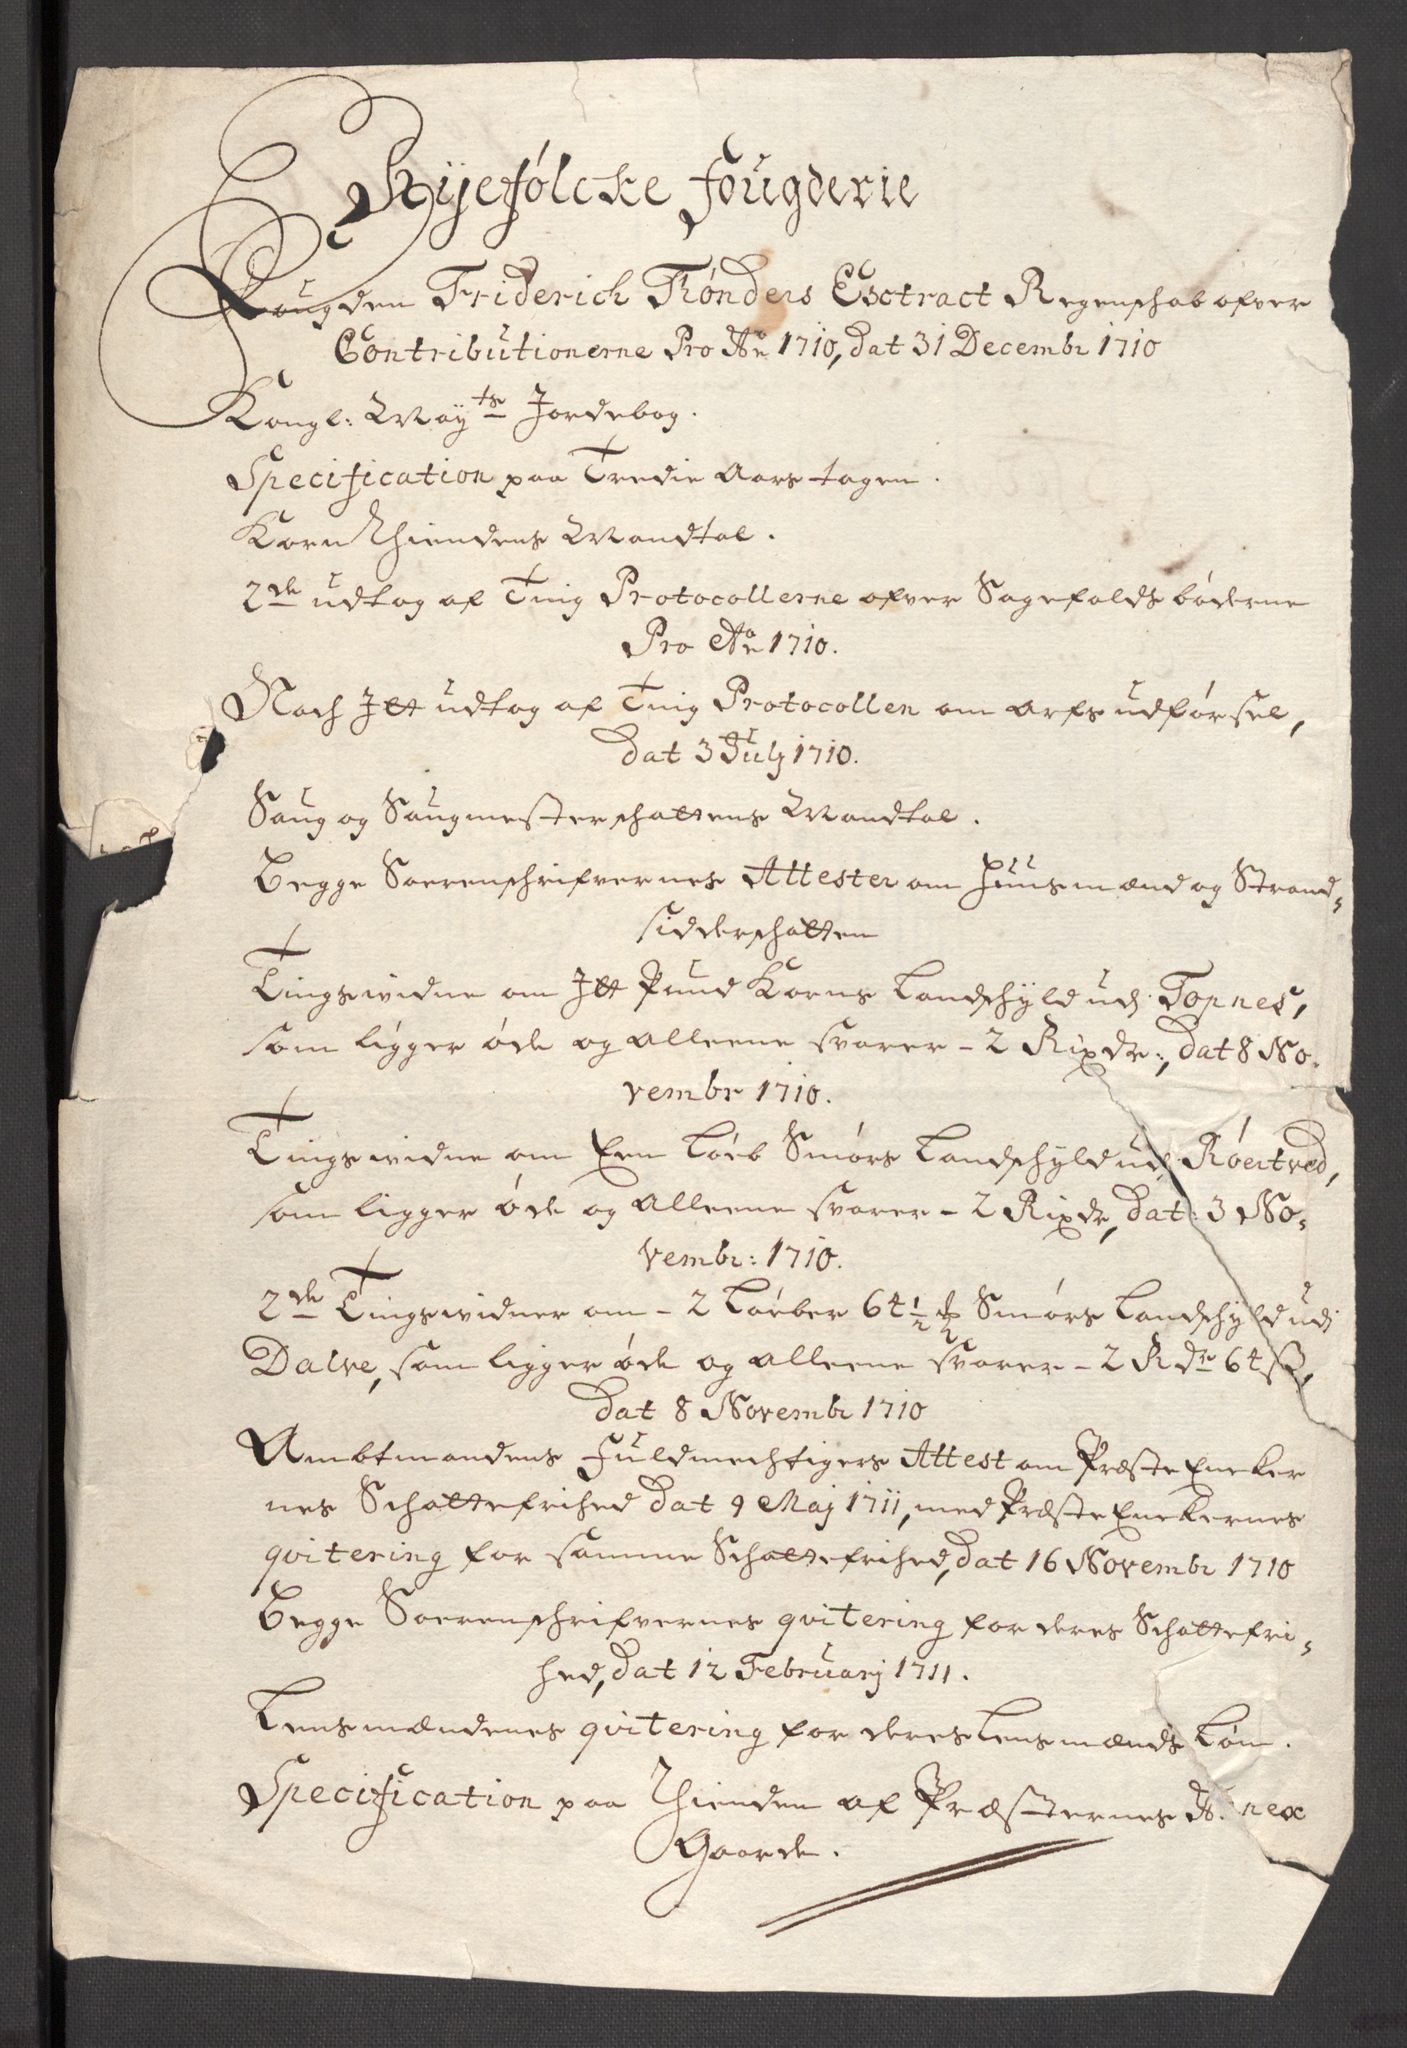 Ryefølcke Fougderie
Fougden Friderich Tønders Extract Regenschab ofver
Contributionerne Pro Ao 1710, dat 31 Decembr 1710
Kongl: Mayts Jordebog.
Specification paa Tredie Aars tagen.
Korn Thiendens Mandtal.
2de udtog af Ting Protocollerne ofver Sagefalds bøderne
Pro Ao 1710.
Noch Itt udtog af Ting Protocollen om Arfs udførsel,
Dat 3 July 1710.
Saug og Saugmesterschattens Mandtal.
Begge Sorenschrifvernes Attester om Huusmænd og Strand-
sidderschatten
Tingsvidne om Itt Pund Korns Landschyld udj Topnes,
som ligger øde og alleene svarer - 2 Rixdr:, Dat 8 No-
vembr 1710.
Tingsvidne om Een Løeb Smørs Landschyld udj Røertved,
som ligger øde og alleene svarer - 2 Rixdr, Dat: 3 No-
vembr: 1710.
2de Tingsvidner om - 2 Løeber 64 1/2 ℔ Smørs Landschyld udj
Dalve, som ligger øde og alleene svarer - 2 Rdr 64 ß,
Dat 8 Novembr 1710
Ambtmandens Fuldmechtigers Attest om Præste Enker
nes Schattefrihed Dat 9 Maj 1711, med Præste Enkernes
qvitering for samme Schattefrihed, dat 16 Novembr 1710
Begge Sorenschrifvernes qvitering for deres Schattefri-
hed, dat 12 Februarj 1711.
Lensmændenes qvitering for deres Lensmænds Løn.
Specification paa Thienden af Præsternes Annex
Gaarde.